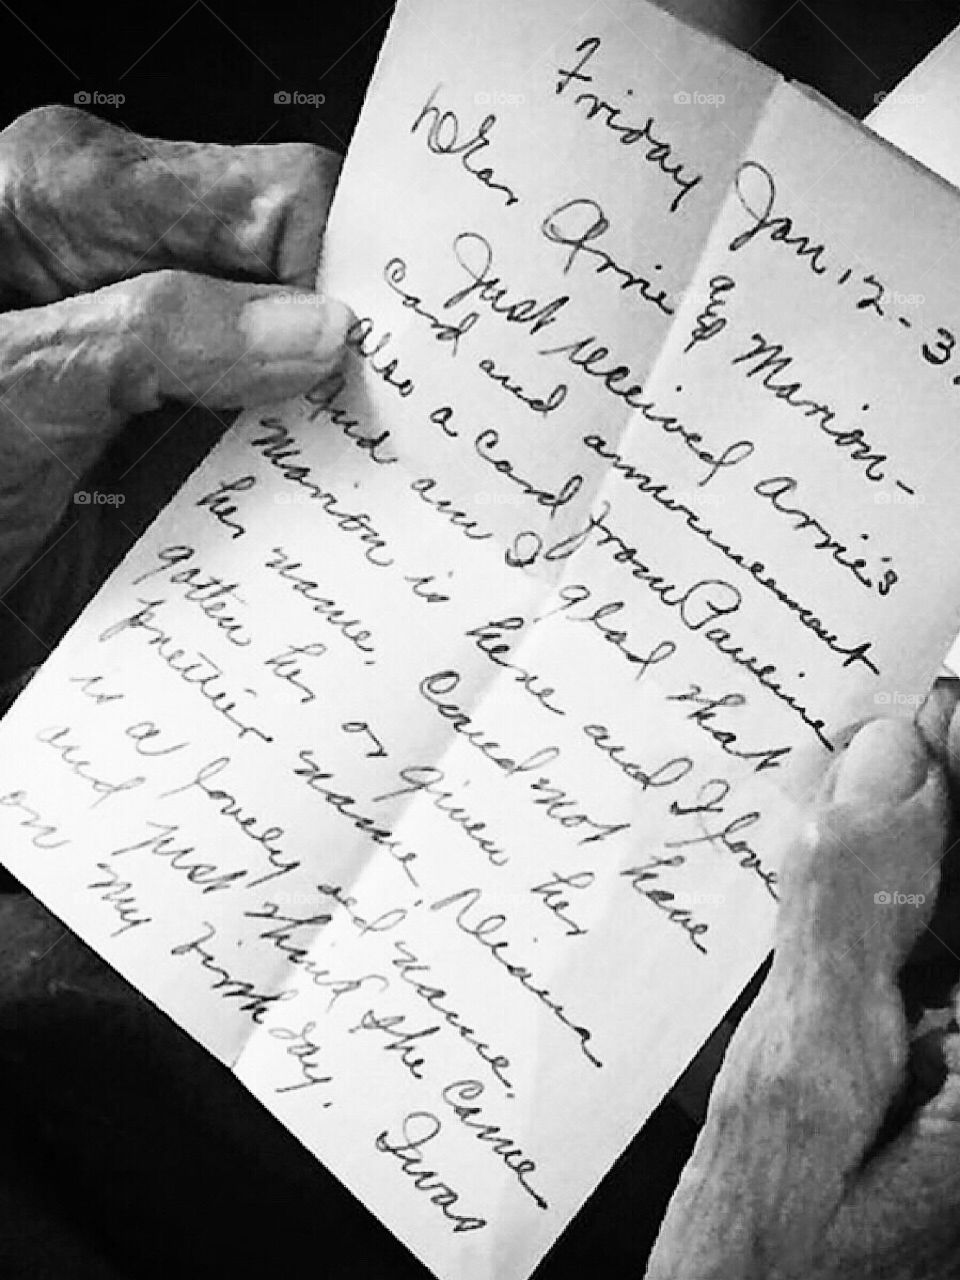 Friday Jan, 12 - 3.
Dear Arnie & Marion -
Just received Arnie's
card and announcement
also a card from Pauline
And am I glad that
Marion is here and I love
her name. Could not have
gotten her or given her
prettier name. Diana
is a lovely name.
and just think she came
on my birthday. I was
foap